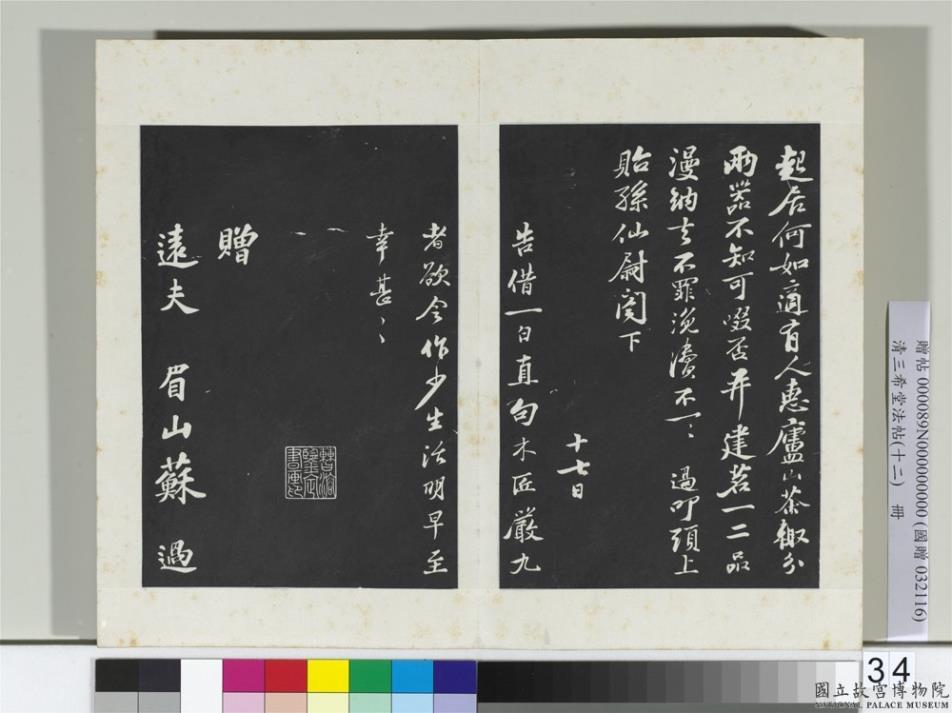 起居何如適有人惠廬山茶輙分
兩器不知可啜否并建茗一二品
漫納去不罪浼瀆不一〻過叩頭上
貽孫仙尉閤下
十七日
告借一白直勾木匠嚴九
者欲令作少生活明早至
幸甚〻
贈
遠夫 眉山蘇 過
贈帖 000089N000000000 (國贈 032116)
清三希堂法帖(十二) 冊
34
國立故宮博物院
NATIONAL PALACE MUSEUM